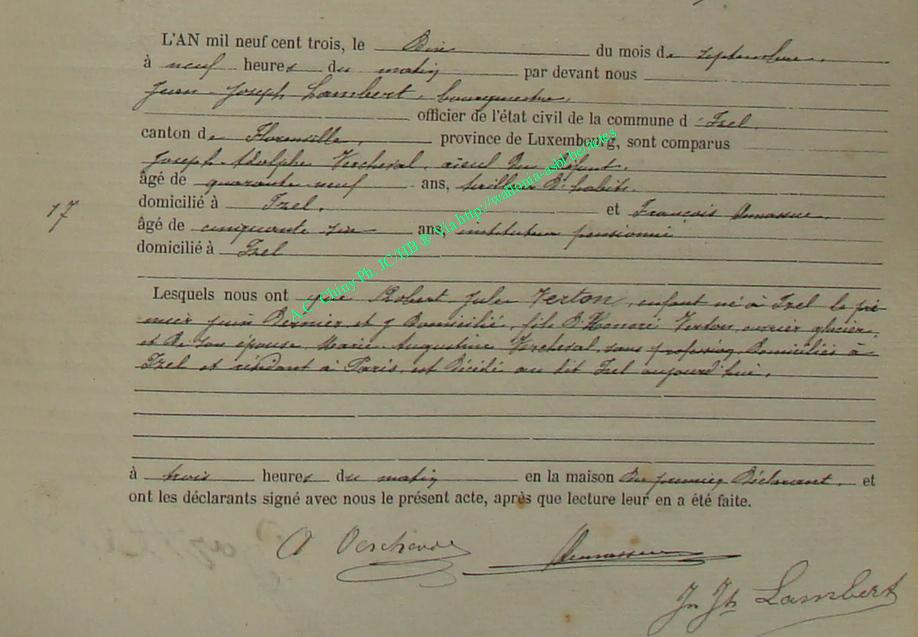 L'AN mil neuf cent trois, le Onze du mois de septembre,
à neuf heures du matin par devant nous
Jean-Joseph Lambert, bourgmestre,
officier de l'état civil de la commune d'Izel,
canton de Florenville, province de Luxembourg, sont comparus
Joseph Adolphe Vercheval, aïeul du défunt
âgé de quarante neuf ans, tailleur d'habits,
domicilié à Izel, et François
17
âgé de cinquante ans, instituteur pensionné
domicilié à Izel
Lesquels nous ont que Robert Jules Verton, enfant né à Izel le pre-
mier juin dernier, et y domicilié, fils d'Honoré Verton, ouvrier glacier,
et de son épouse, Marie-Augustine Vercheval, sans profession, domiciliés à
Izel et résidant à Paris, est décédé au dit Izel aujourd'hui,
à trois heures du matin en la maison du premier déclarant, et
ont les déclarants signé avec nous le présent acte, après que lecture leur en a été faite.
A Vercheval
Jn Jh Lambert
A.C. Chiny Ph. JC/HB ® Via http://wallonia-asbl.be/ares